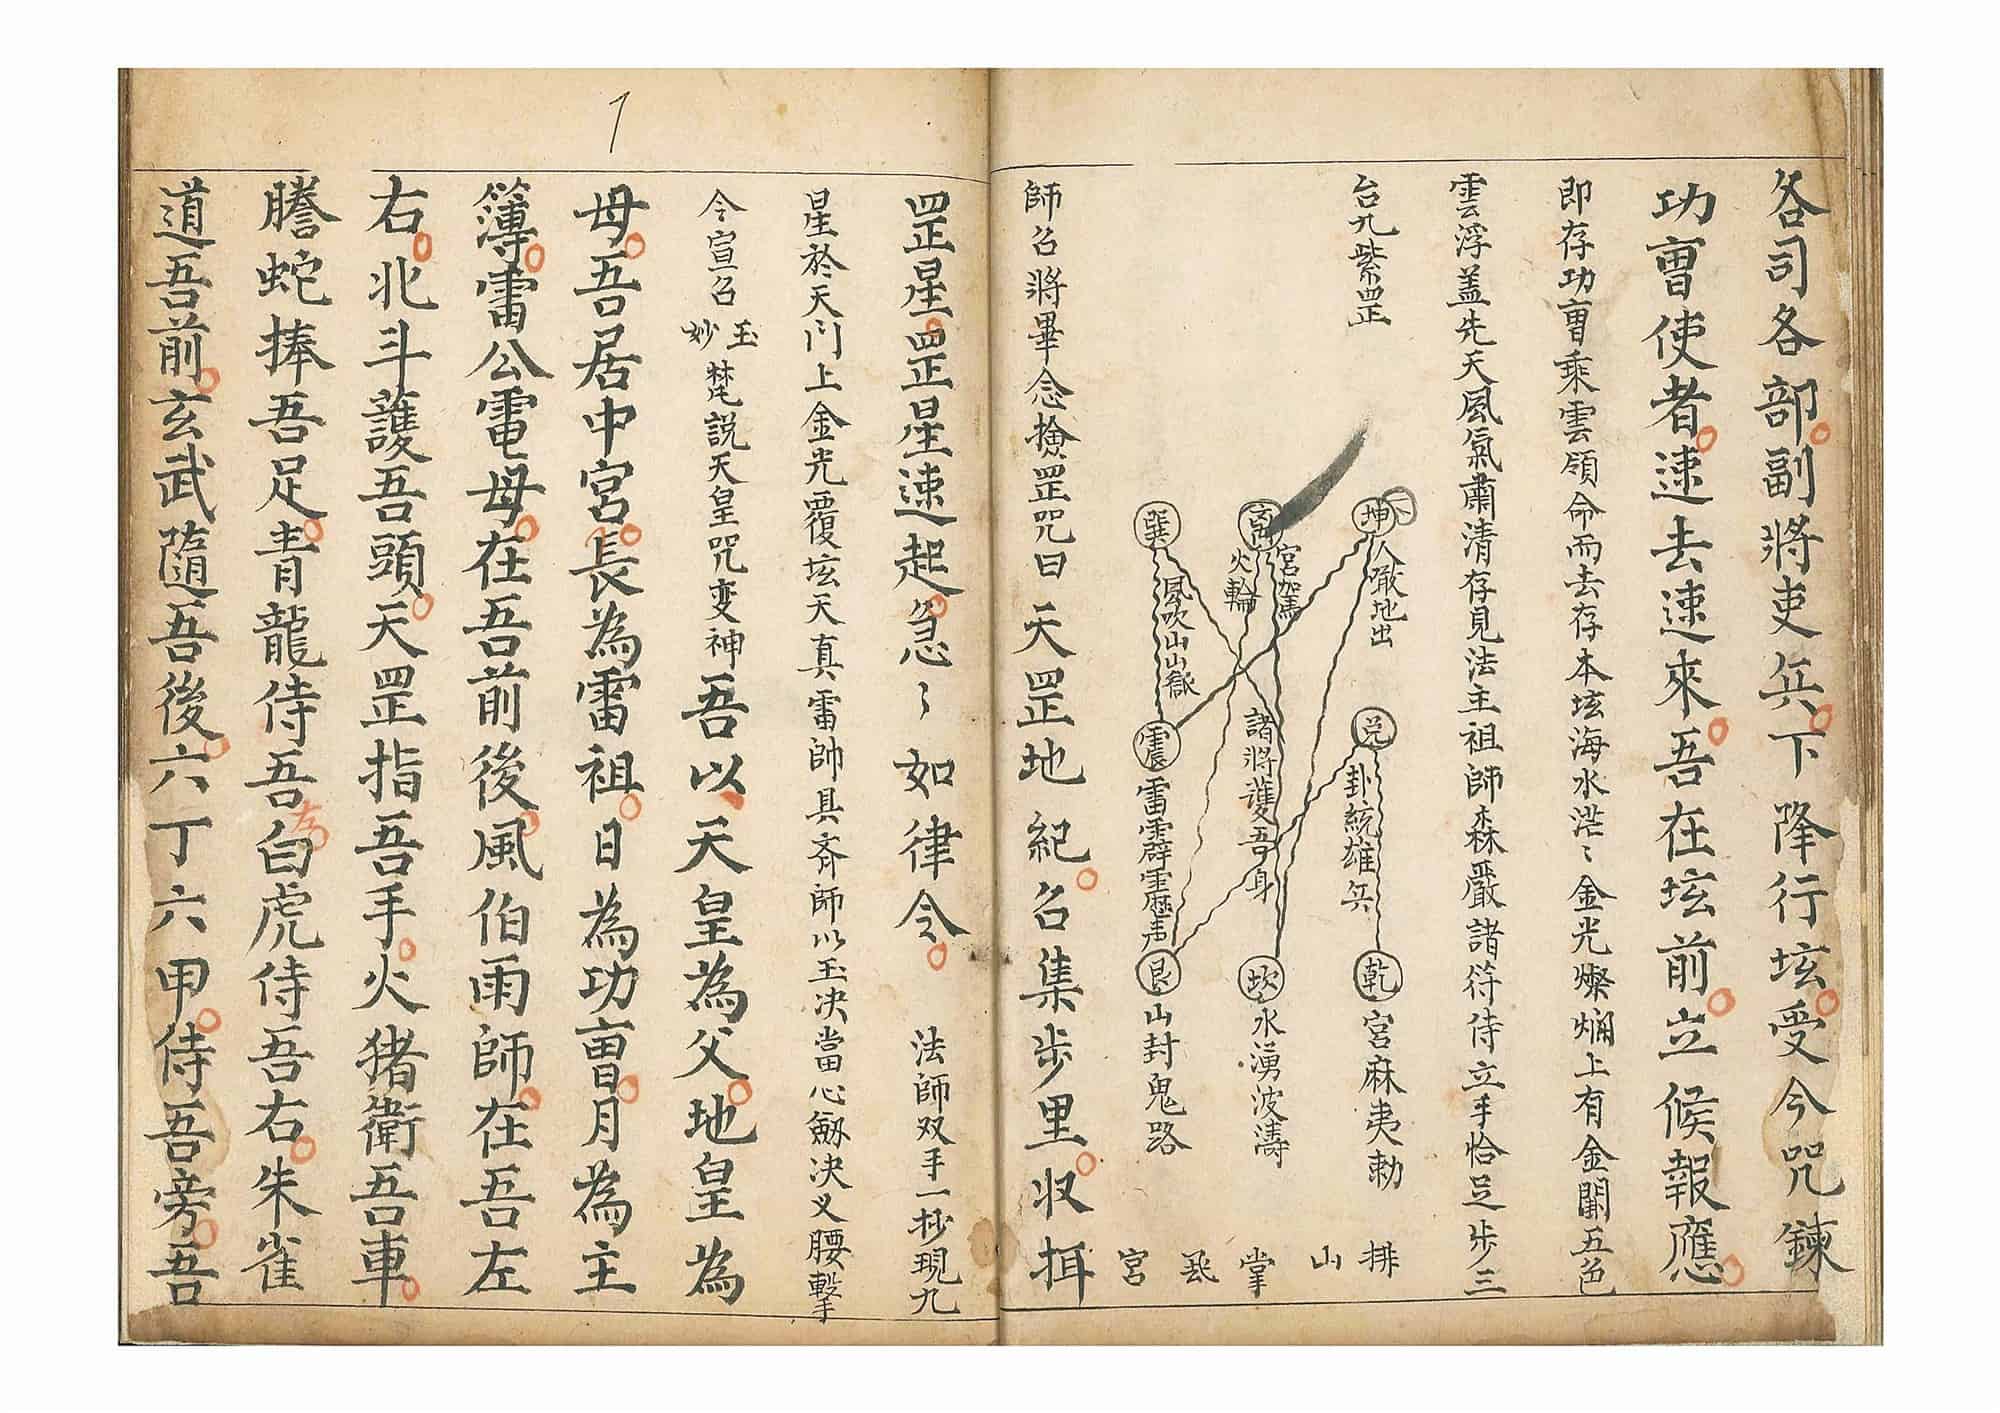 各司各部副將吏兵下降行坛受今咒鍊
功曹使者速去速來吾在坛前立候報應
即存功曹乘雲領命而去存本坛海水茫〻金光燦爛上有金闕五色
雲浮盖先天風氣肅清存見法主祖師森嚴諸符侍立手恰足步三
台九紫罡
坤人噉地出
离宮駕火輪
巽風吹山山嶽
兑卦統雄兵
諸將護吾身
震雷霹靂声
乾宮麻夷勅
坎水湧波濤
艮山封鬼路
排山掌 宮
師召將畢念撿罡咒曰天罡地紀召集步里収揖
罡星罡星速起急〻如律令 法師双手一抄現九
星於天门上金光覆坛天真雷帥具斉師以玉决當心劔决义腰擊
令宣召玉妙梵説天皇咒变神吾以天皇為父地皇為
母吾居中宮長為雷祖日為功曹月為主
簿雷公電母在吾前後風伯雨師在吾左
右北斗護吾頭天罡指吾手火猪衛吾車
騰蛇捧吾足青龍侍吾左白虎侍吾右朱雀
道吾前玄武隨吾後六丁六甲侍吾旁吾